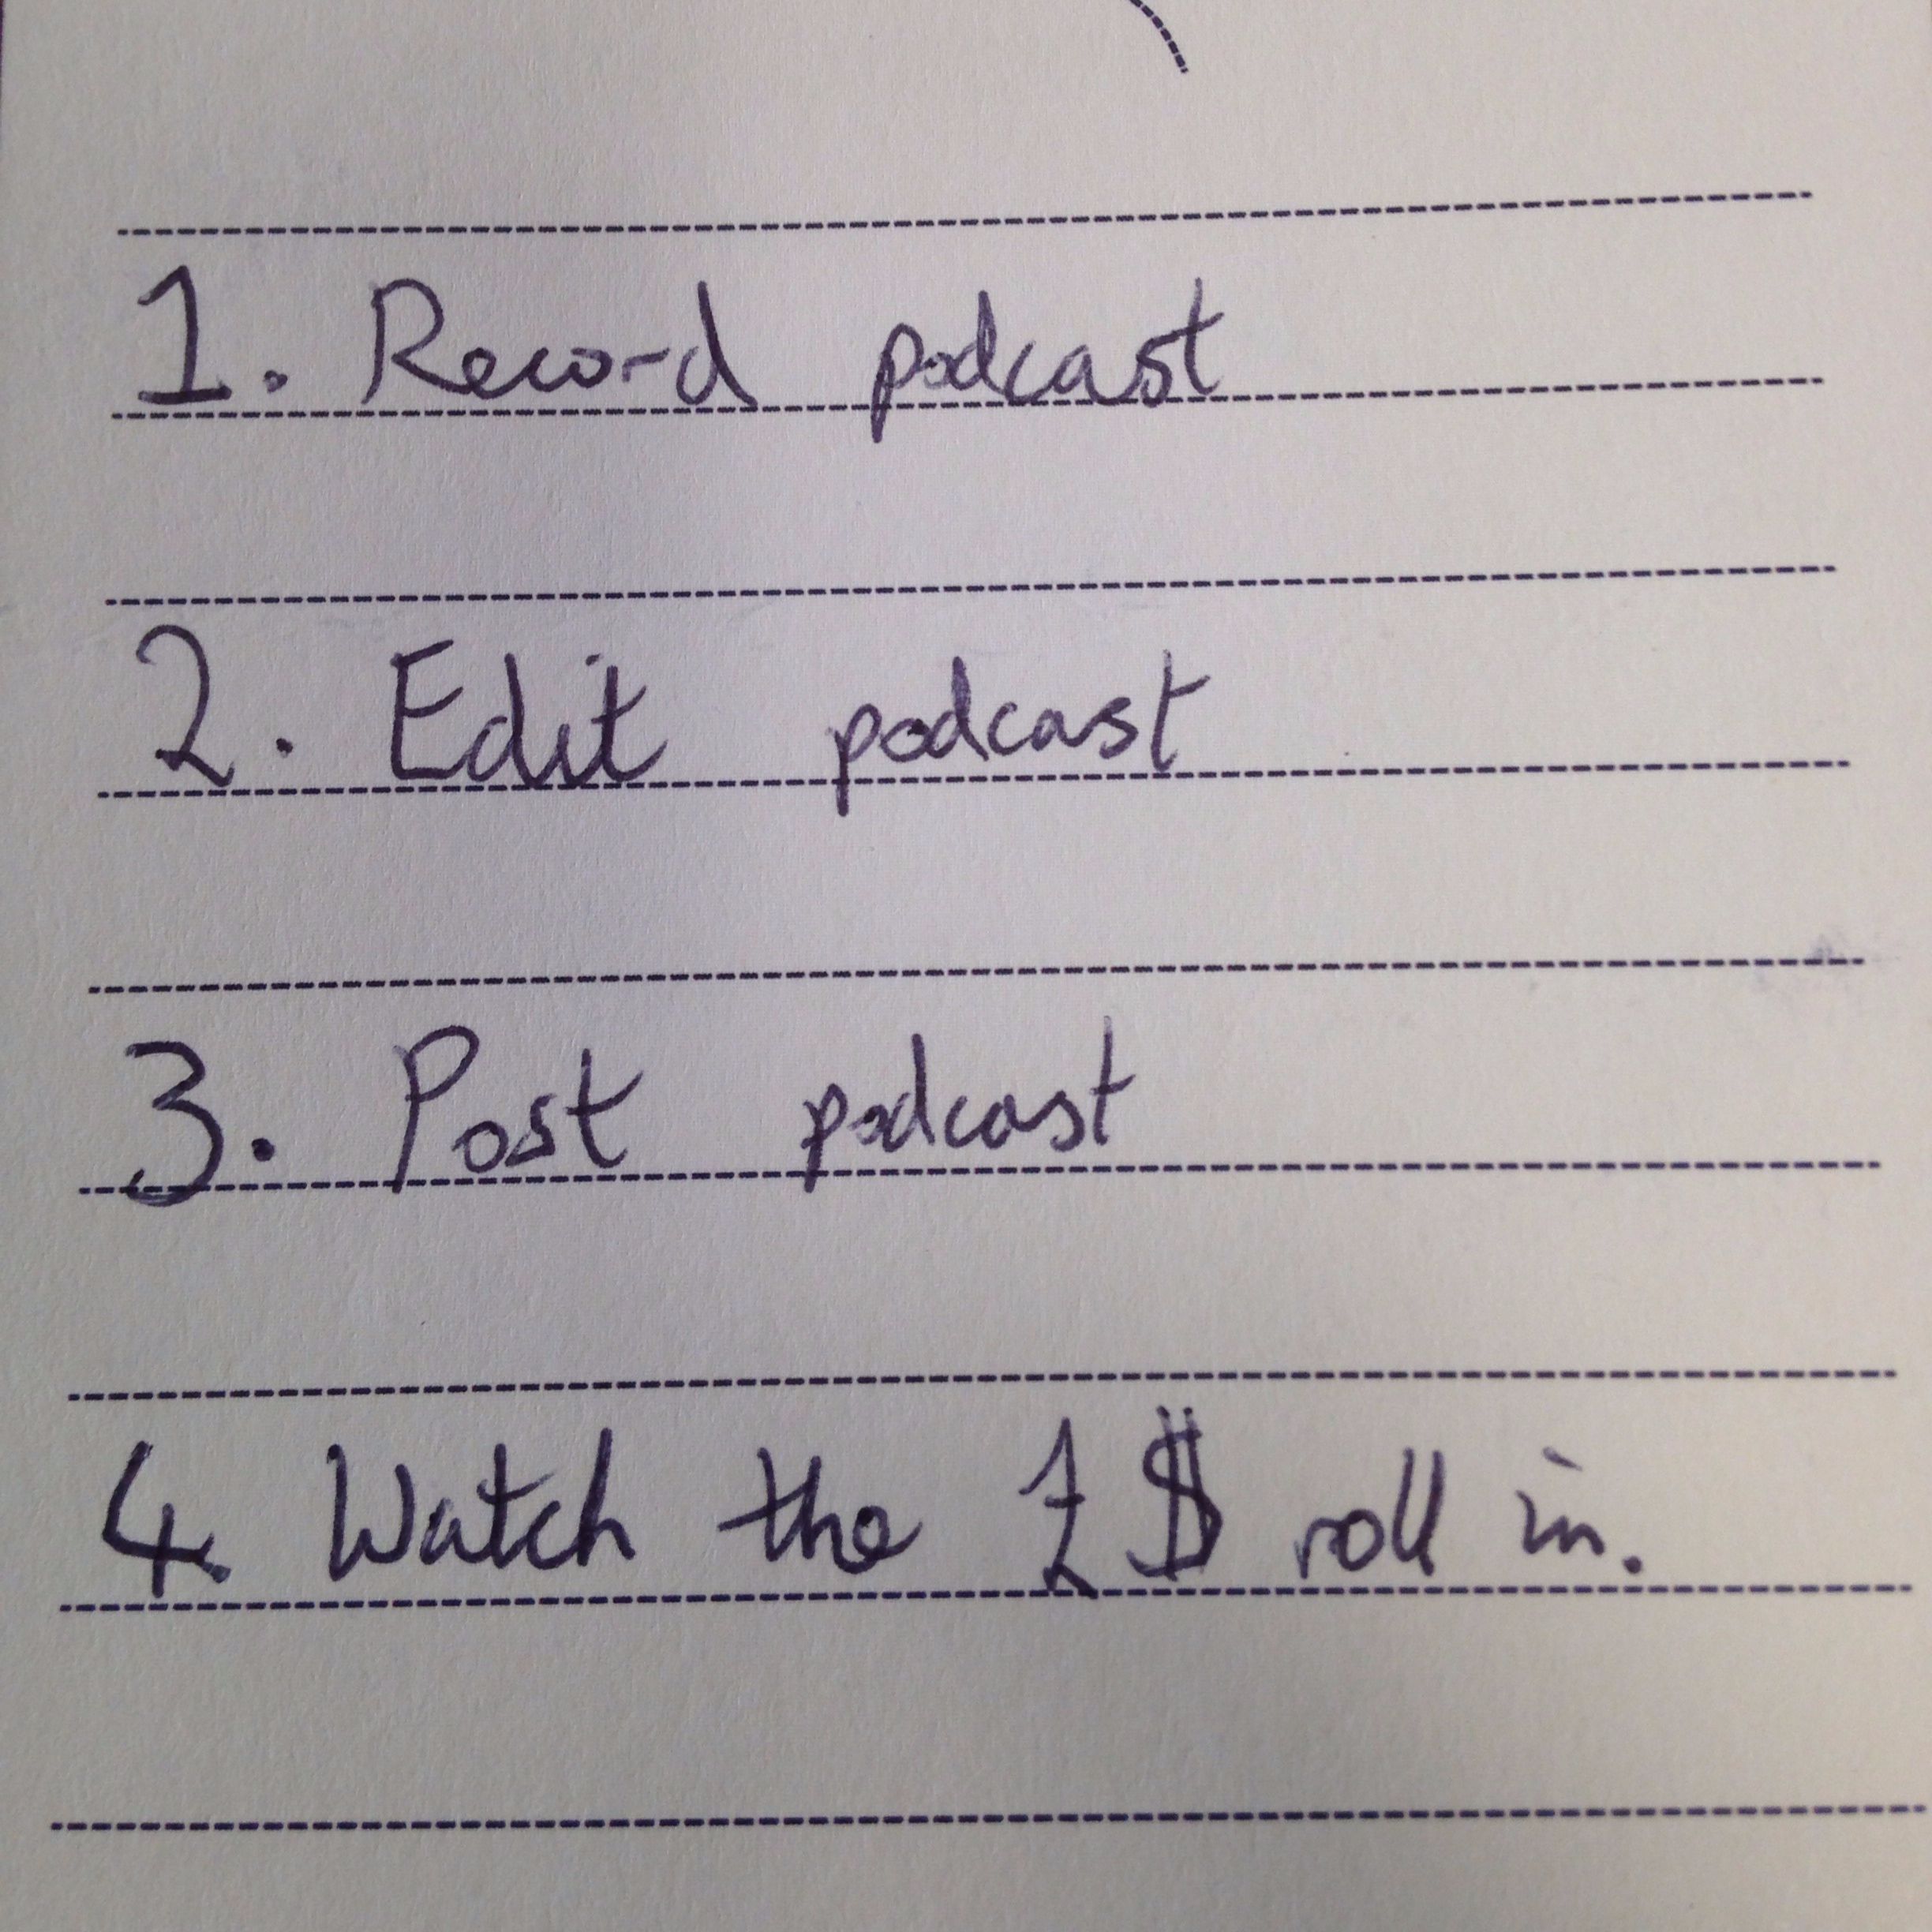 1. Record podcast
2. Edit podcast
3. Post podcast
4. Watch the £$ roll in.